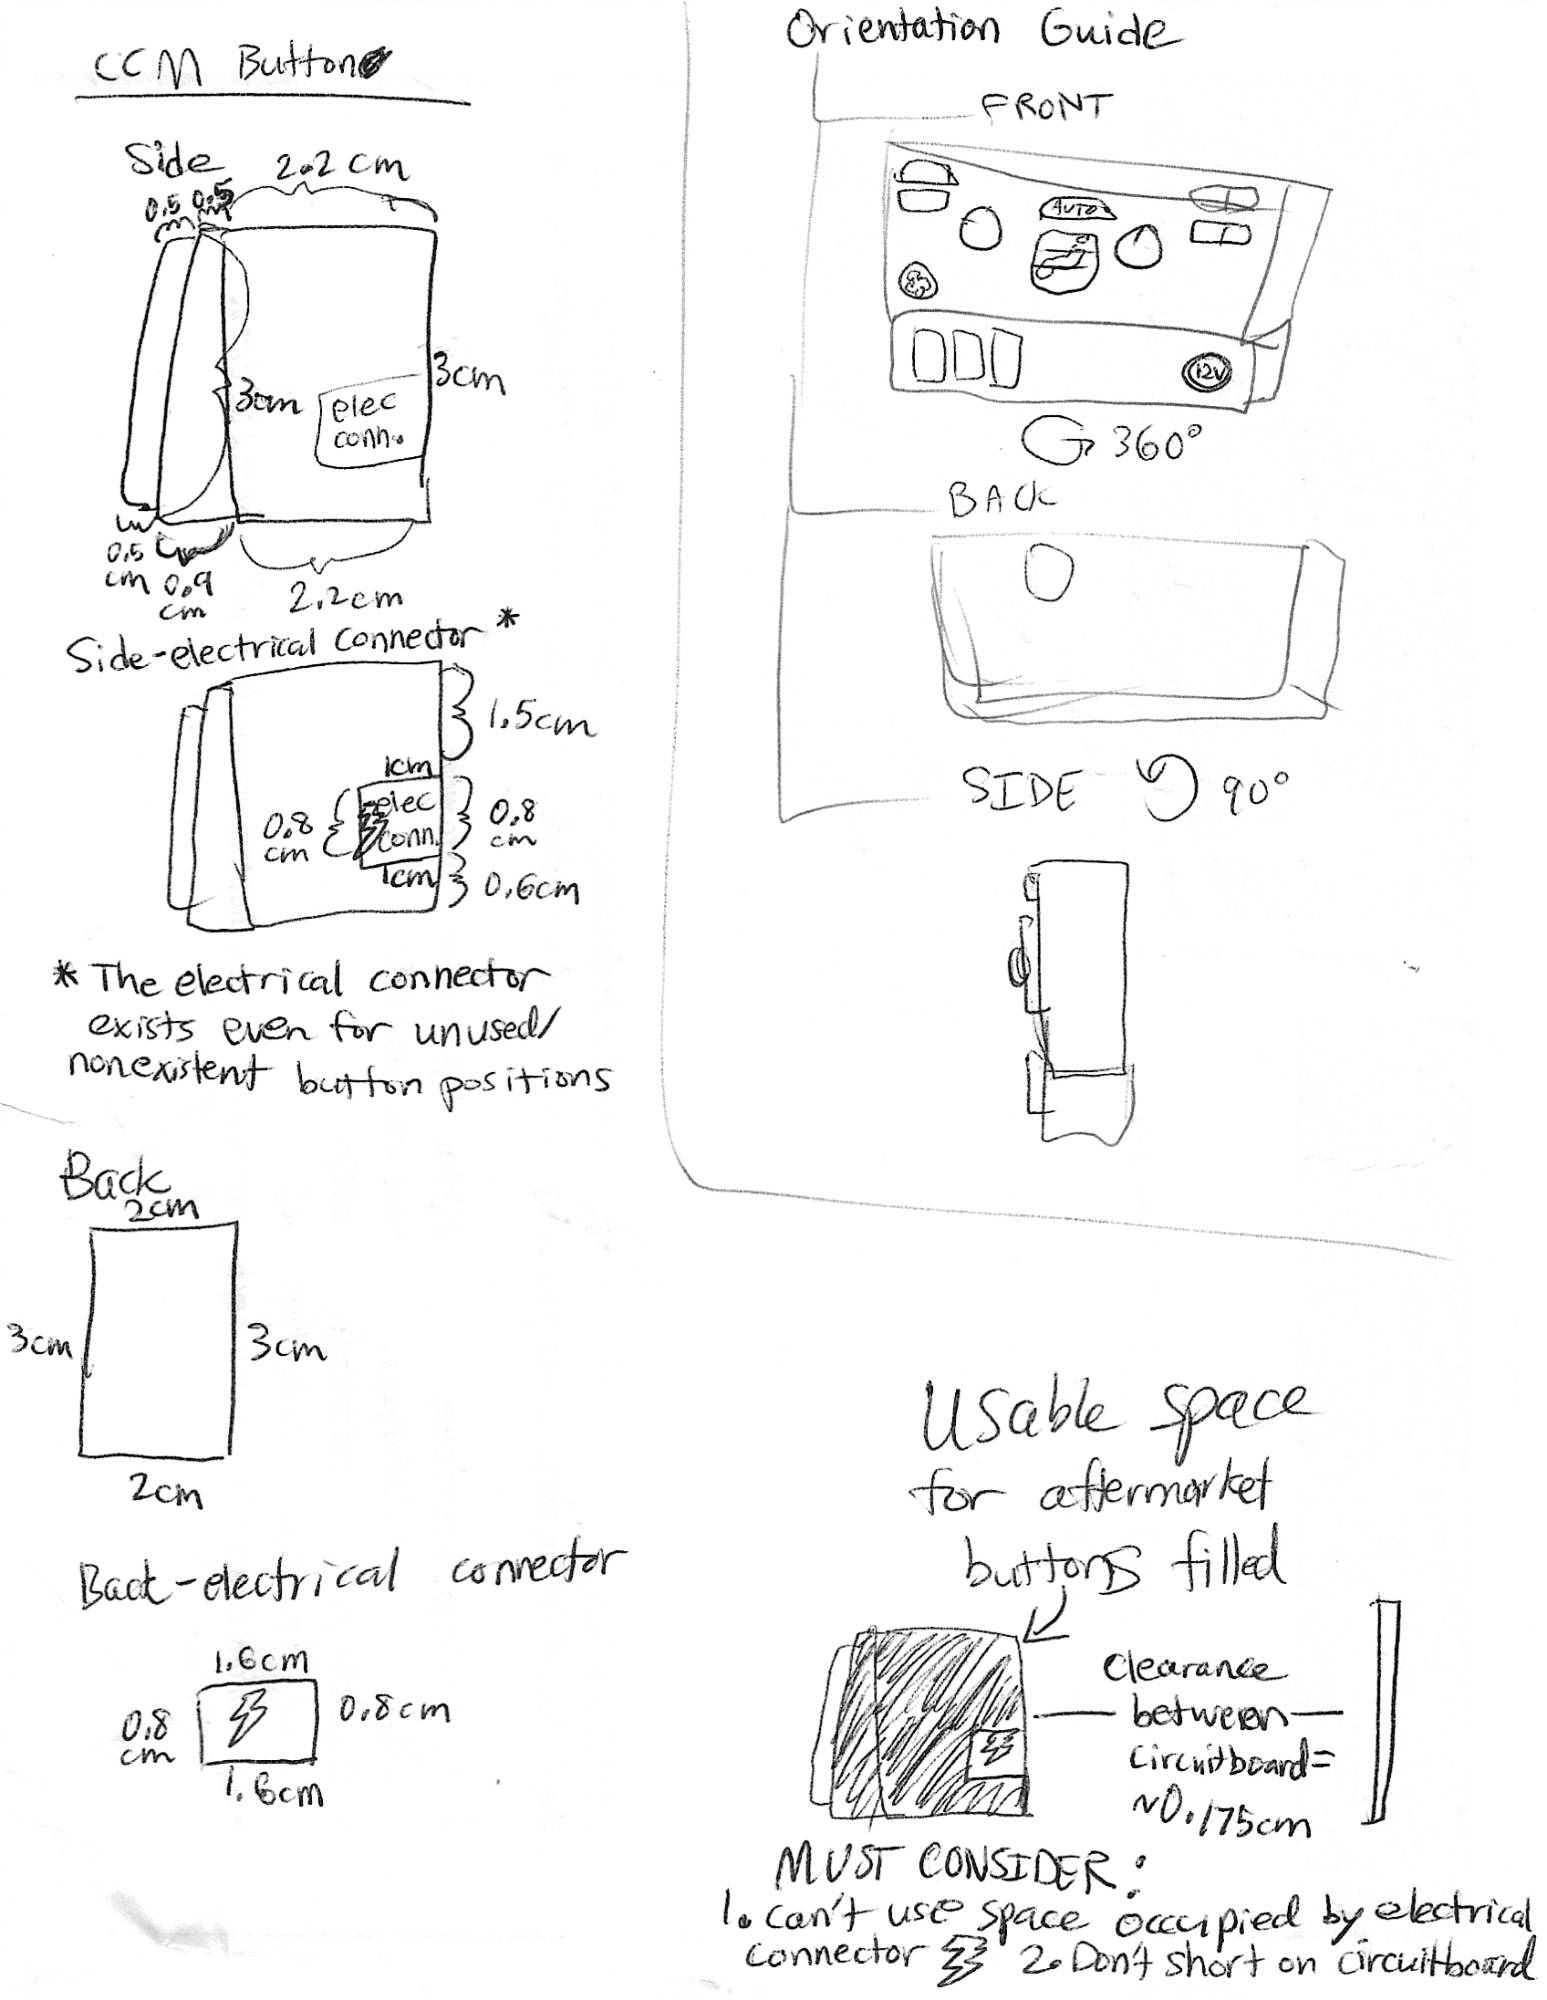 CCM Button
Side
2.2 cm
0.5
0.5
3cm
3cm
elec
conn.
0.5
cm
0.9
cm
2.2cm
Side-electrical connector *
1.5cm
1cm
elec
conn.
0.8
cm
0.8
cm
1cm
0.6cm
* The electrical connector
exists even for unused/
nonexistent button positions
Back
2cm
3cm
3cm
2cm
Back-electrical connector
1.6cm
0.8
cm
0.8cm
1.6cm
Orientation Guide
FRONT
AUTO
12V
360°
BACK
SIDE 90°
Usable space
for aftermarket
buttons filled
Clearance
between
circuitboard=
~0.175cm
MUST CONSIDER:
1. can't use space occupied by electrical
connector 2. Don't short on circuitboard